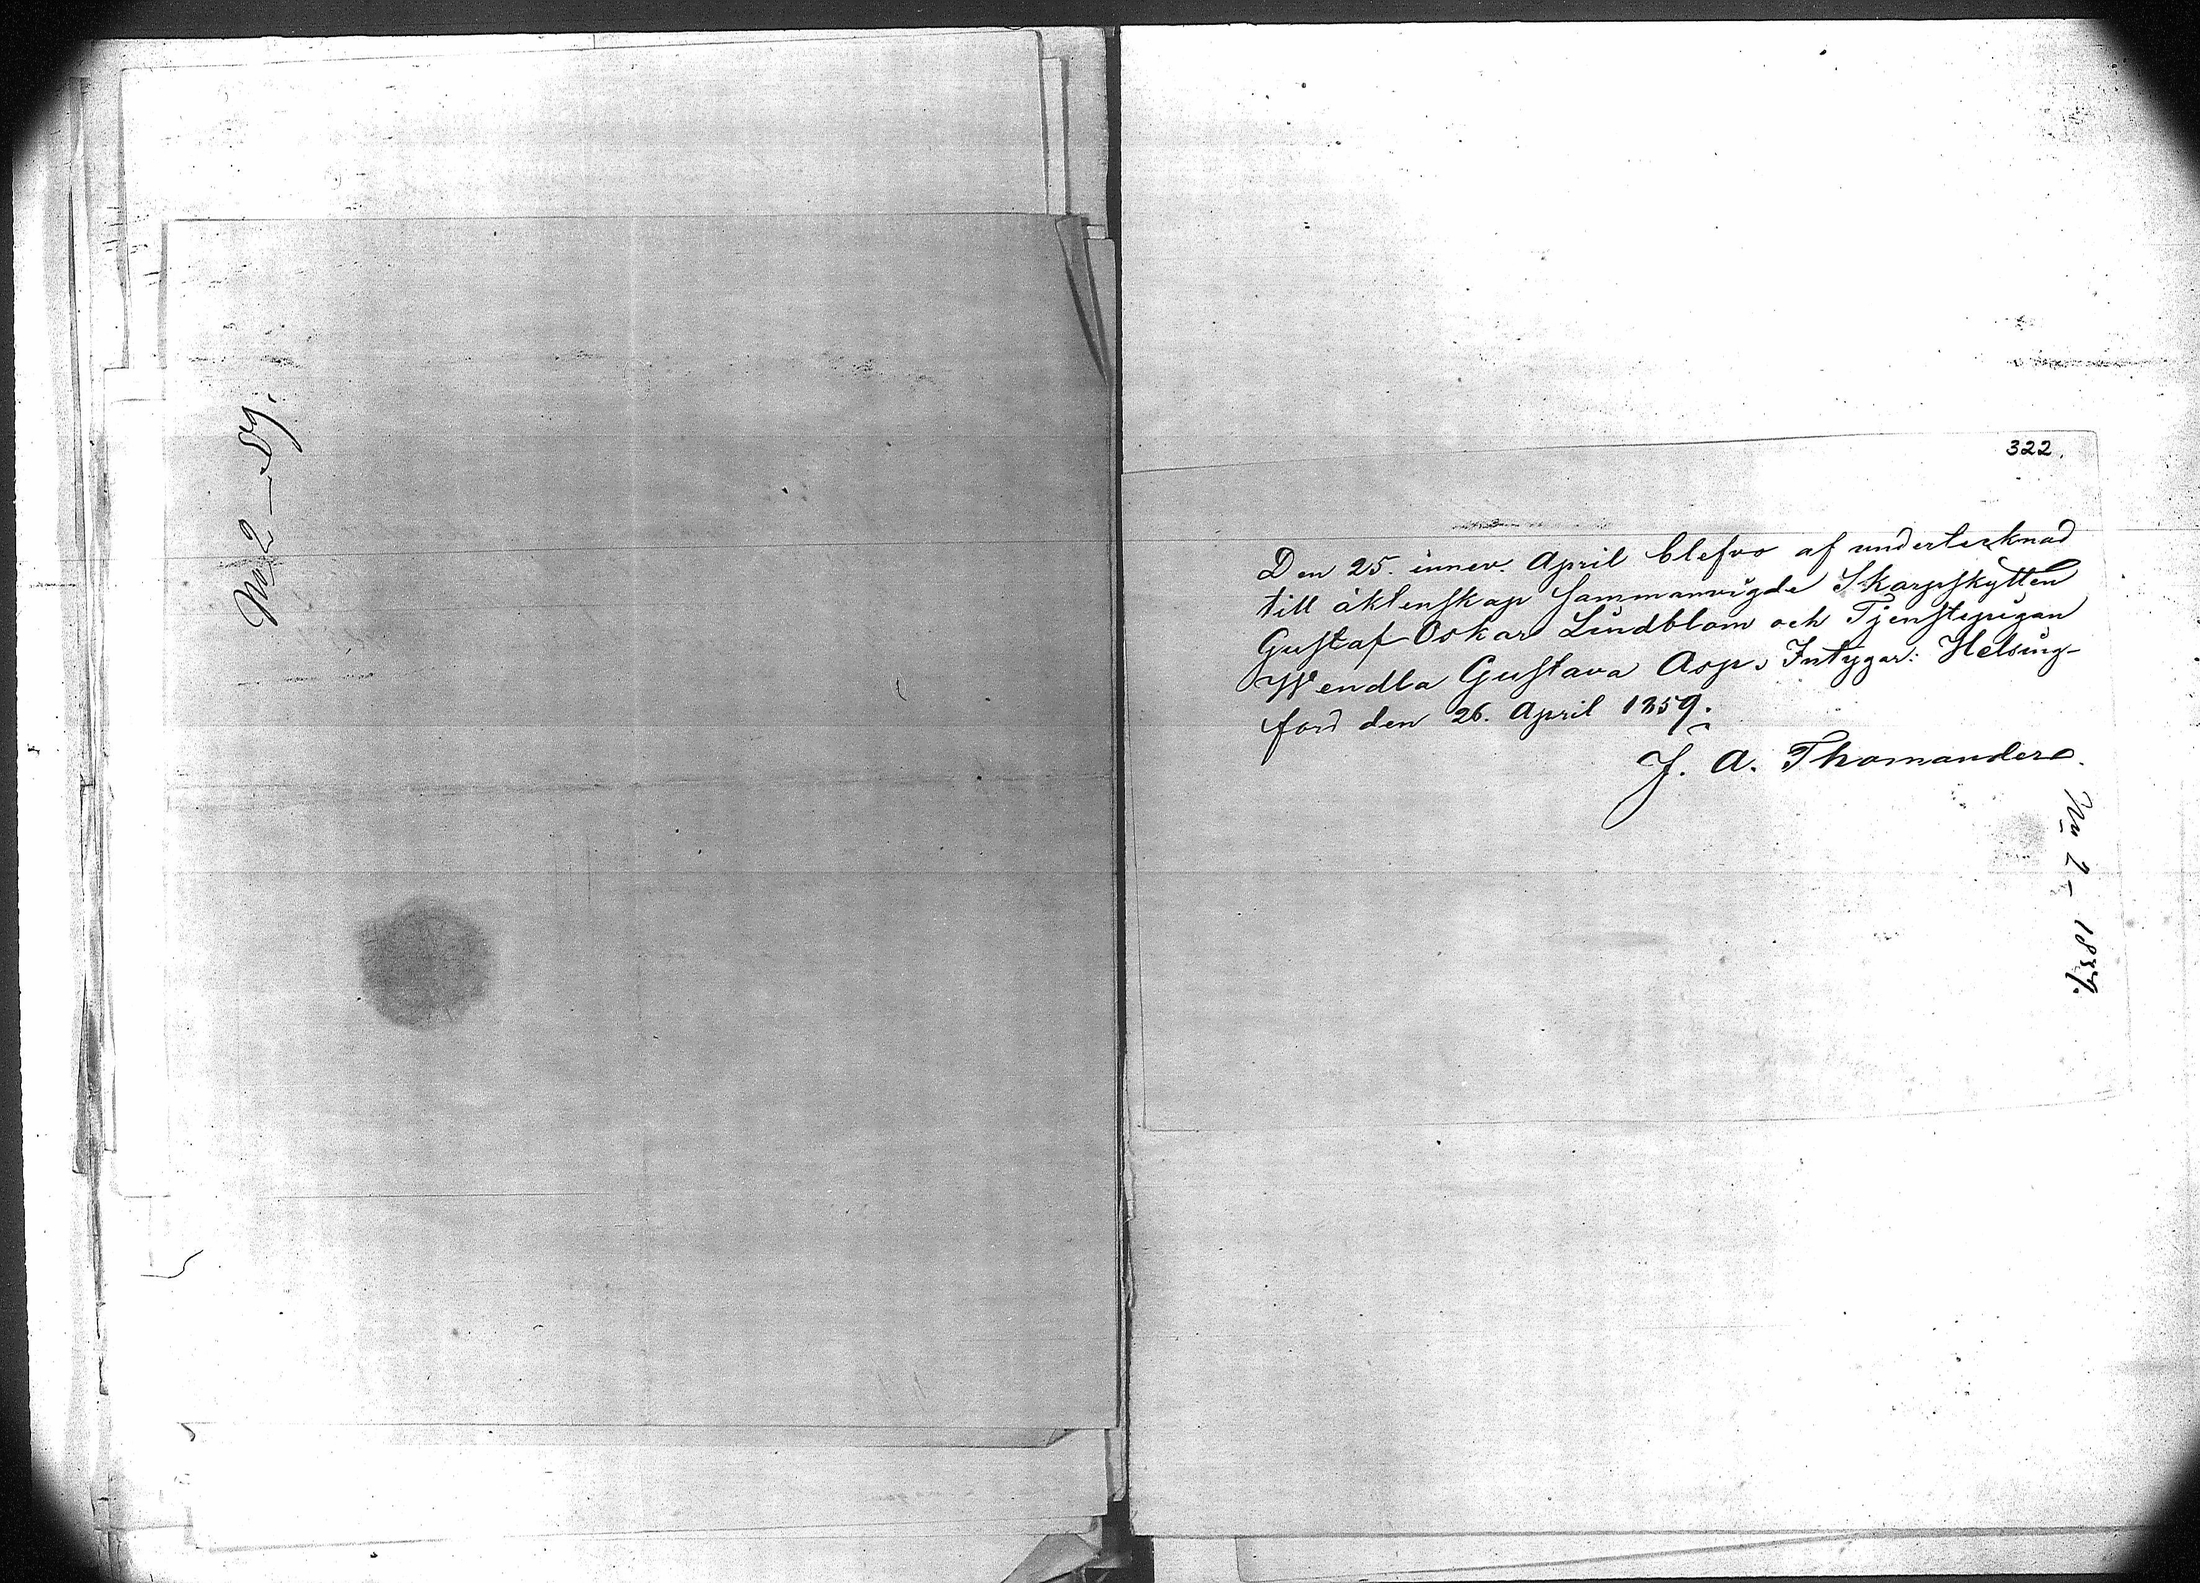 No 2 — 59.
322.
Den 25. innev. April blefvo af undertecknad
till äktenskap sammanvigde Skarpskytten
Gustaf Oskar Lindblom och Tjenstepigan
Wendla Gustava Asp. Intygar: Helsing-
fors den 26. April 1859.
J. A. Thomander.
No 2 - 1859.